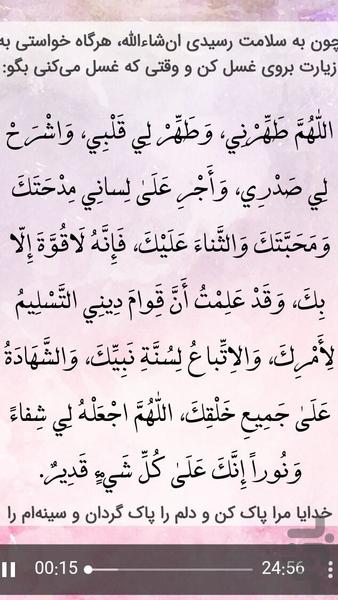 چون به سلامت رسیدی ان‌شاءالله، هرگاه خواستی به
زیارت بروی غسل کن و وقتی که غسل می‌کنی بگو:
اللّٰهُمَّ طَهِّرْنِي، وَطَهِّرْ لِي قَلْبِي، وَاشْرَحْ
لِي صَدْرِي، وَأَجْرِ عَلَىٰ لِسانِي مِدْحَتَكَ
وَمَحَبَّتَكَ وَالثَّناءَ عَلَيْكَ، فَإِنَّهُ لَاقُوَّةَ إِلّا
بِكَ، وَقَدْ عَلِمْتُ أَنَّ قِوامَ دِينِي التَّسْلِيمُ
لِأَمْرِكَ، وَالاِتِّباعُ لِسُنَّةِ نَبِيِّكَ، وَالشَّهادَةُ
عَلَىٰ جَمِيعِ خَلْقِكَ، اللّٰهُمَّ اجْعَلْهُ لِي شِفاءً
وَنُوراً إِنَّكَ عَلَىٰ كُلِّ شَيْءٍ قَدِيرٌ.
خدایا مرا پاک کن و دلم را پاک گردان و سینه‌ام را
00:15 24:56